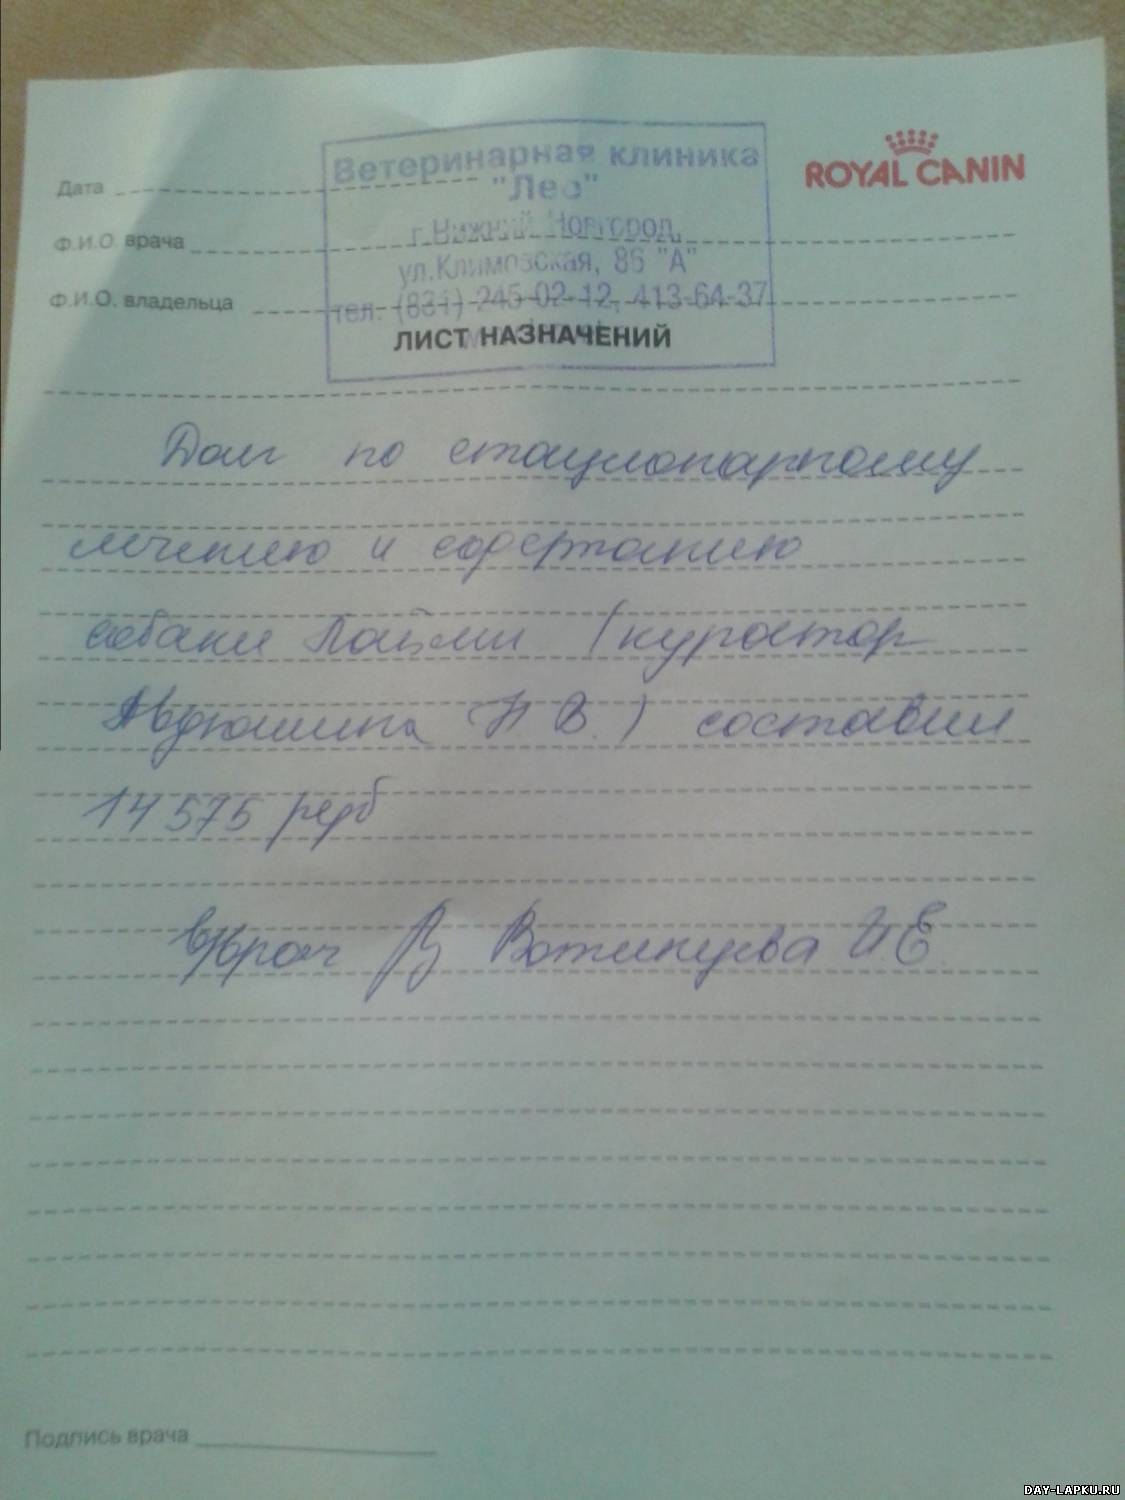 Ветеринарная клиника
"Лео"
г.Нижний Новгород,
ул.Климовская, 86 "А"
тел. (831) 245-02-12, 413-64-37
ROYAL CANIN
Дата
Ф.И.О. врача
Ф.И.О. владельца
ЛИСТ НАЗНАЧЕНИЙ
Долг по стационарному
лечению и содержанию
собаки (куратор
Авдюшина Н В.) составил
14575 руб
врач Вотинцева И Е
Подпись врача
DAY-LAPKU.RU